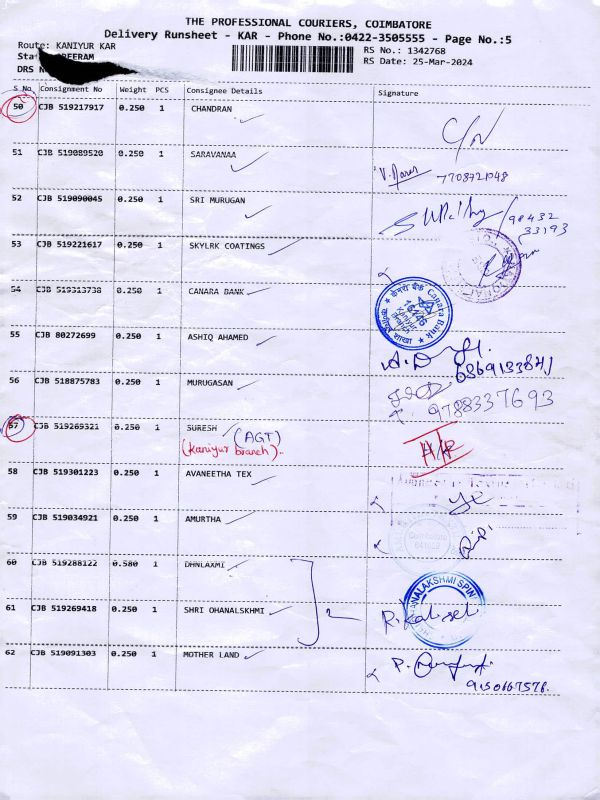 THE PROFESSIONAL COURIERS, COIMBATORE
Delivery Runsheet - KAR - Phone No.:0422-3505555 - Page No.:5
Route: KANIYUR KAR
RS No.: 1342768
RS Date: 25-Mar-2024
DRS
S No Consignment No Weight PCS Consignee Details Signature
50 CJB 519217917 0.250 1 CHANDRAN
51 CJB 519089520 0.250 1 SARAVANAA
7708721048
52 CJB 519090045 0.250 1 SRI MURUGAN
98432
33193
53 CJB 519221617 0.250 1 SKYLRK COATINGS
54 CJB 519313738 0.250 1 CANARA BANK
केनरा बैंक Canara Bank
Kaniyur
Branch
55 CJB 80272699 0.250 1 ASHIQ AHAMED
56 CJB 518875783 0.250 1 MURUGASAN
9788337693
57 CJB 519269321 0.250 1 SURESH (AGT)
(Kaniyur branch)..
58 CJB 519301223 0.250 1 AVANEETHA TEX
59 CJB 519034921 0.250 1 AMURTHA
Coimbatore
60 CJB 519288122 0.580 1 DHNLAXMI
61 CJB 519269418 0.250 1 SHRI OHANALSKHMI
62 CJB 519091303 0.250 1 MOTHER LAND
9150667576.